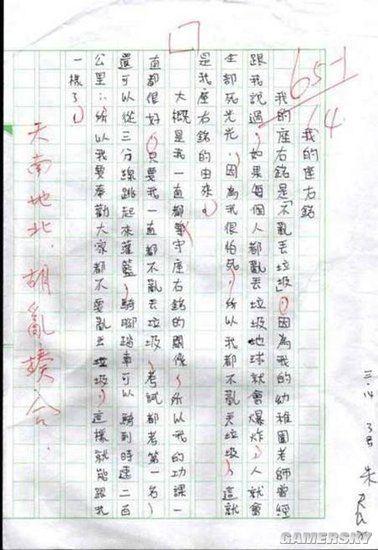 三
朱
65-1
我的座右銘
我的座右銘是「不亂丟垃圾」因為我的幼稚園老師曾經
跟我說過,如果每個人都亂丟垃圾地球就會爆炸,人就會
全部死光光,因為我很怕死,所以我都不亂丟垃圾,這就
是我座右銘的由來。
大概是我一直都遵守座右銘的關係,所以我的功課一
直都很好,只要我一直都不亂丟垃圾,考試都考第一名,
還可以從三分線跳起來灌籃,騎腳踏車可以騎到時速二百
公里…,所以我要奉勸大家都不要亂丟垃圾,這樣就能跟我
一樣了。
天南地北.胡亂揍合.
GAMERSKY